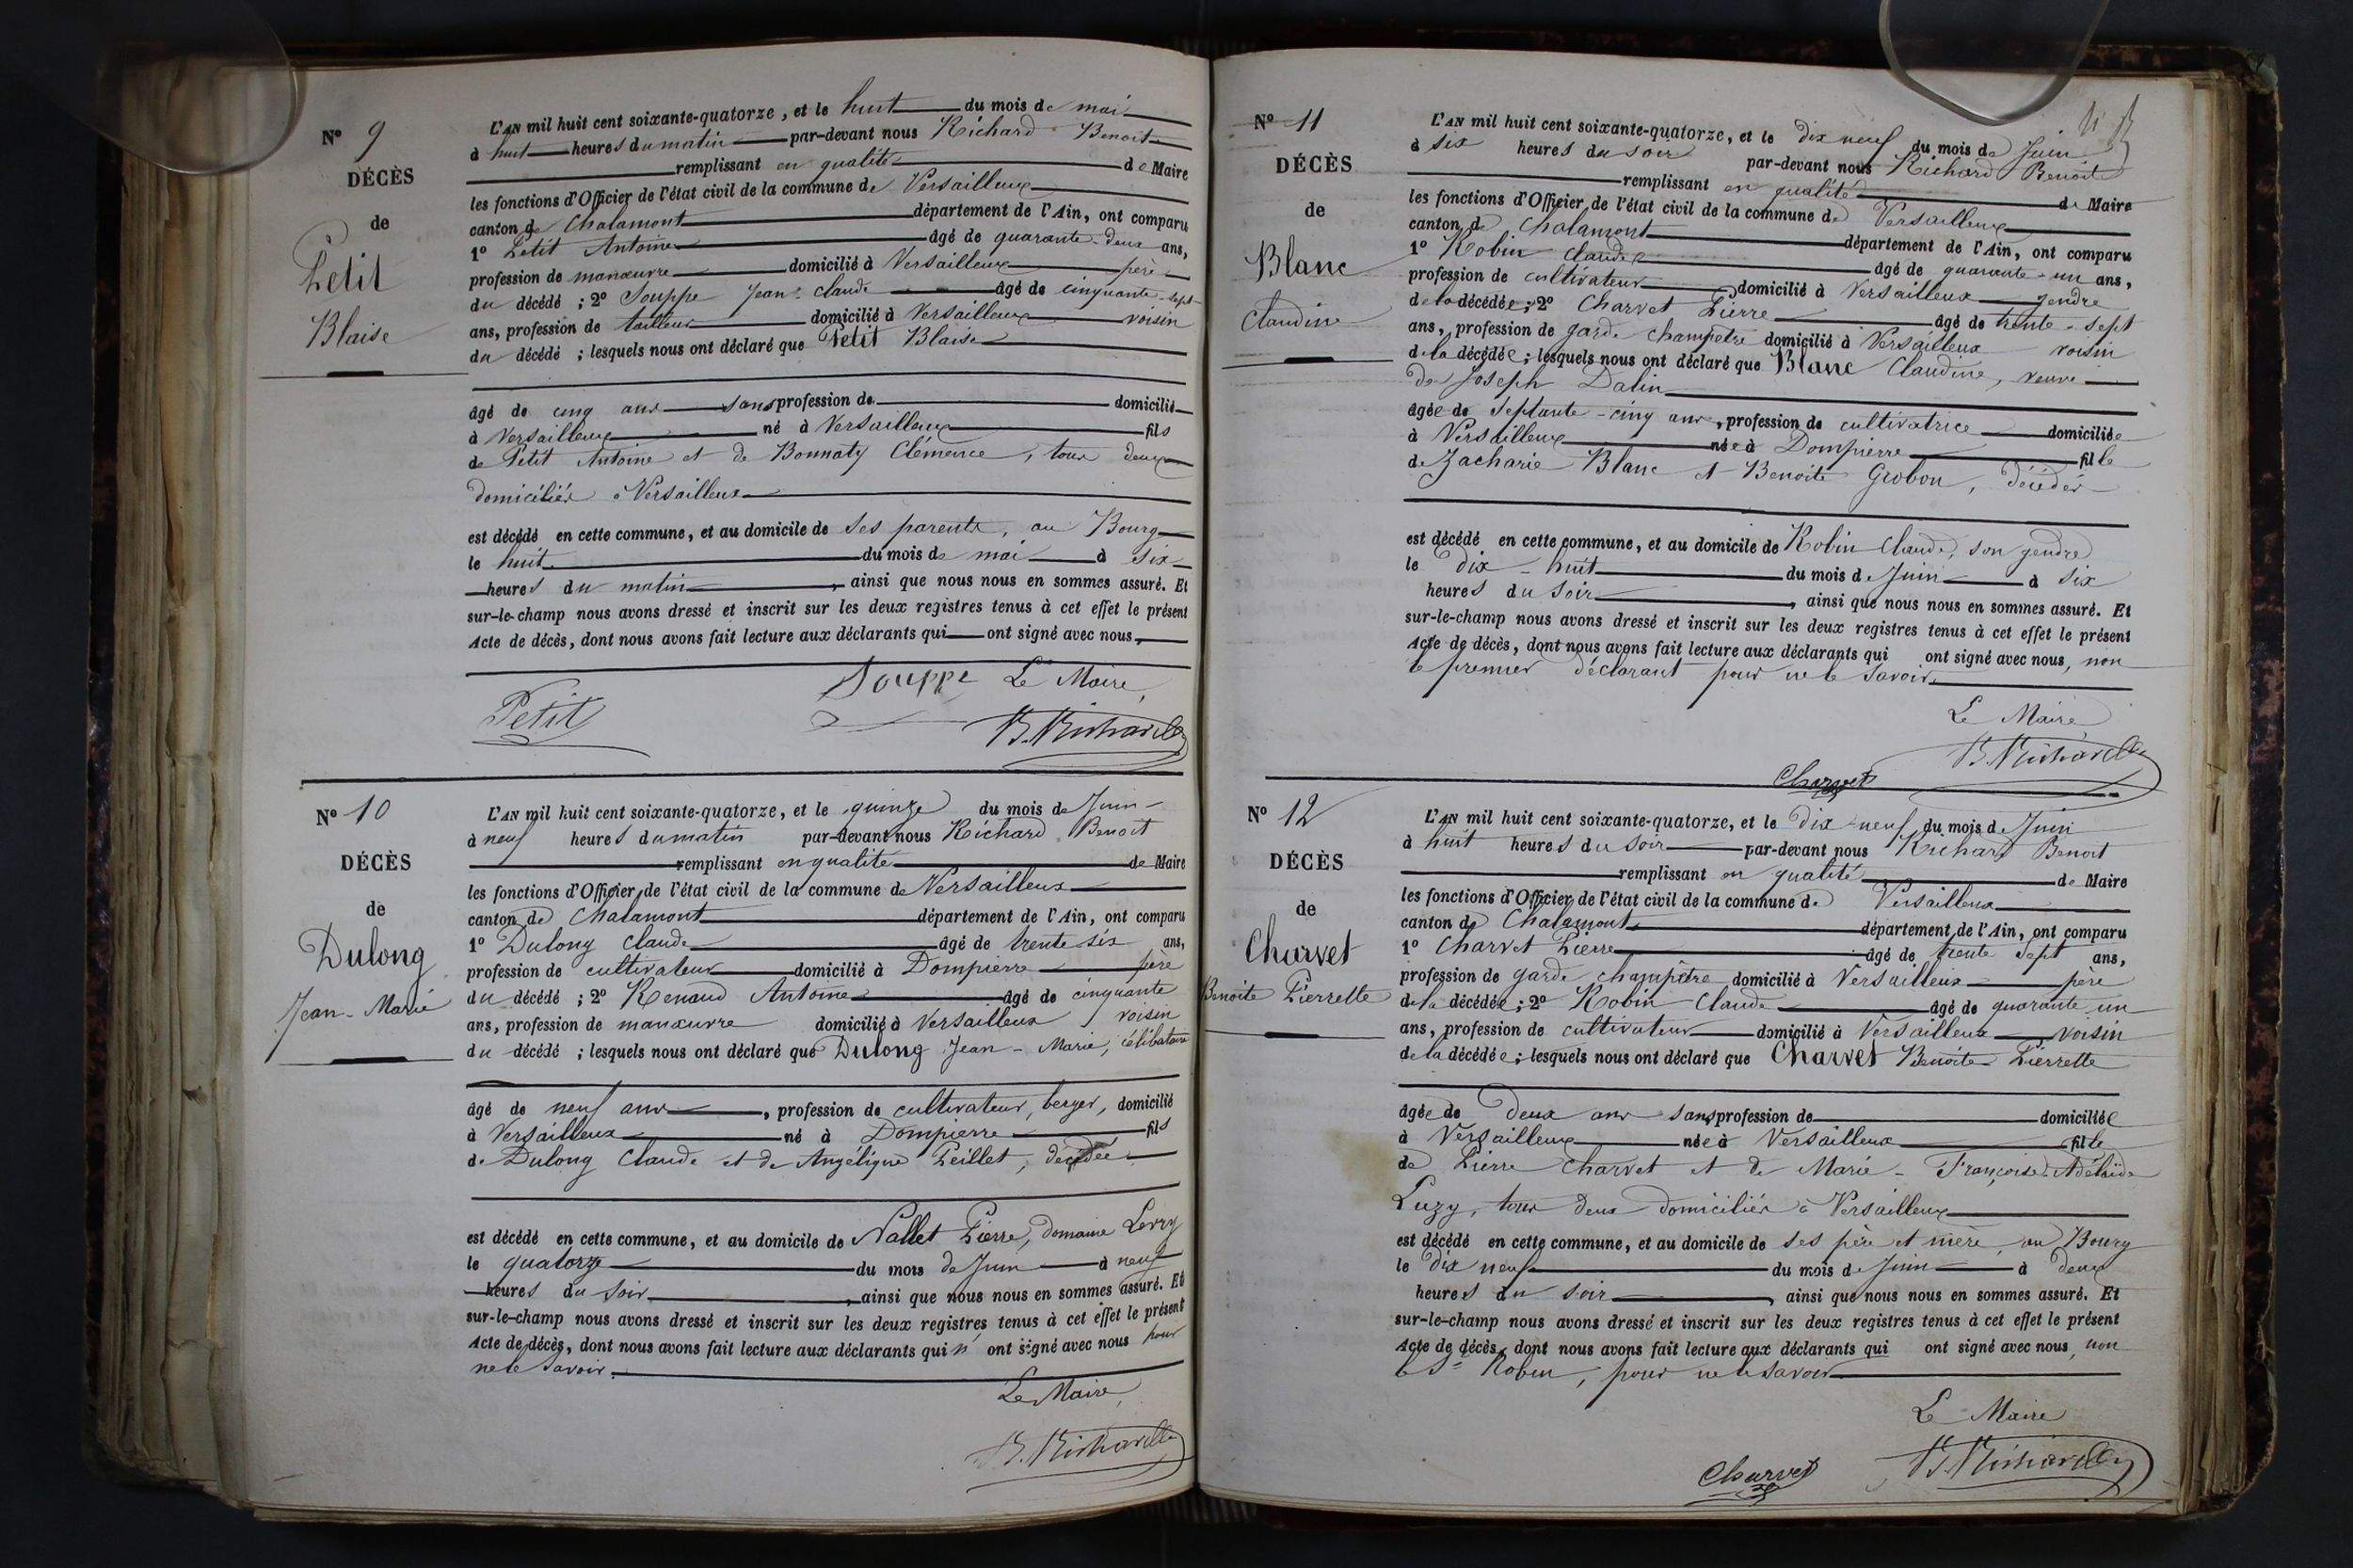 N° 9
DÉCÈS
de
Petit
Blaise
L'AN mil huit cent soixante-quatorze, et le huit du mois de mai
à huit heures du matin par-devant nous Richard Benoit
remplissant en qualité de Maire
les fonctions d'Officier de l'état civil de la commune de Versailleux
canton de Chalamont département de l'Ain, ont comparu
1° Petit Antoine âgé de quarante-deux ans,
profession de manœuvre domicilié à Versailleux père
du décédé ; 2° Souppe Jean-Claude âgé de cinquante-sept
ans, profession de tailleur domicilié à Versailleux voisin
du décédé ; lesquels nous ont déclaré que Petit Blaise
âgé de cinq ans sans profession de domicilié
à Versailleux né à Versailleux fils
de Petit Antoine et de Bonnaty Clémence, tous deux
domiciliés à Versailleux
est décédé en cette commune, et au domicile de ses parents, au Bourg
le huit du mois de mai à six
heures du matin, ainsi que nous nous en sommes assuré. Et
sur-le-champ nous avons dressé et inscrit sur les deux registres tenus à cet effet le présent
Acte de décès, dont nous avons fait lecture aux déclarants qui ont signé avec nous,
Souppe Le Maire,
Petit B. Richard
N° 10
DÉCÈS
de
Dulong
Jean-Marie
L'AN mil huit cent soixante-quatorze, et le quinze du mois de Juin
à neuf heures du matin par-devant nous Richard Benoit
remplissant en qualité de Maire
les fonctions d'Officier de l'état civil de la commune de Versailleux
canton de Chalamont département de l'Ain, ont comparu
1° Dulong Claude âgé de trente six ans,
profession de cultivateur domicilié à Dompierre père
du décédé ; 2° Renaud Antoine âgé de cinquante
ans, profession de manœuvre domicilié à Versailleux voisin
du décédé ; lesquels nous ont déclaré que Dulong Jean-Marie, célibataire
âgé de neuf ans, profession de cultivateur, berger, domicilié
à Versailleux né à Dompierre fils
de Dulong Claude et de Angélique Peillet, décédée
est décédé en cette commune, et au domicile de Nallet Pierre, domaine
le quatorze du mois de Juin à neuf
heures du soir, ainsi que nous nous en sommes assuré. Et
sur-le-champ nous avons dressé et inscrit sur les deux registres tenus à cet effet le présent
Acte de décès, dont nous avons fait lecture aux déclarants qui n' ont signé avec nous pour
ne le savoir.
Le Maire,
B. Richard
N° 11
DÉCÈS
de
Blanc
Claudine
L'AN mil huit cent soixante-quatorze, et le dix neuf du mois de Juin
à six heures du soir par-devant nous Richard Benoit
remplissant en qualité de Maire
les fonctions d'Officier de l'état civil de la commune de Versailleux
canton de Chalamont département de l'Ain, ont comparu
1° Robin Claude âgé de quarante-un ans,
profession de cultivateur domicilié à Versailleux gendre
de la décédée ; 2° Charvet Pierre âgé de trente-sept
ans, profession de garde champêtre domicilié à Versailleux voisin
de la décédée ; lesquels nous ont déclaré que Blanc Claudine, veuve
de Joseph Dalin
âgée de septante-cinq ans, profession de cultivatrice domiciliée
à Versailleux née à Dompierre fille
de Zacharie Blanc et Benoite Grobon, décédés
est décédé en cette commune, et au domicile de Robin Claude, son gendre
le dix-huit du mois de Juin à six
heures du soir, ainsi que nous nous en sommes assuré. Et
sur-le-champ nous avons dressé et inscrit sur les deux registres tenus à cet effet le présent
Acte de décès, dont nous avons fait lecture aux déclarants qui ont signé avec nous, non
le premier déclarant pour ne le savoir.
Le Maire
B. Richard
Charvet
N° 12
DÉCÈS
de
Charvet
Benoite Pierrette
L'AN mil huit cent soixante-quatorze, et le dix-neuf du mois de Juin
à huit heures du soir par-devant nous Richard Benoit
remplissant en qualité de Maire
les fonctions d'Officier de l'état civil de la commune de Versailleux
canton de Chalamont département de l'Ain, ont comparu
1° Charvet Pierre âgé de trente sept ans,
profession de garde champêtre domicilié à Versailleux père
de la décédée ; 2° Robin Claude âgé de quarante un
ans, profession de cultivateur domicilié à Versailleux voisin
de la décédée ; lesquels nous ont déclaré que Charvet Benoite-Pierrette
âgée de deux ans sans profession de domiciliée
à Versailleux née à Versailleux fille
de Pierre Charvet et de Marie-Françoise-Adélaïde
Luzy, tous deux domiciliés à Versailleux
est décédé en cette commune, et au domicile de ses père et mère, au Bourg
le dix neuf du mois de Juin à deux
heures du soir, ainsi que nous nous en sommes assuré. Et
sur-le-champ nous avons dressé et inscrit sur les deux registres tenus à cet effet le présent
Acte de décès, dont nous avons fait lecture aux déclarants qui ont signé avec nous, non
le Sr Robin, pour ne le savoir
Le Maire
Charvet B. Richard